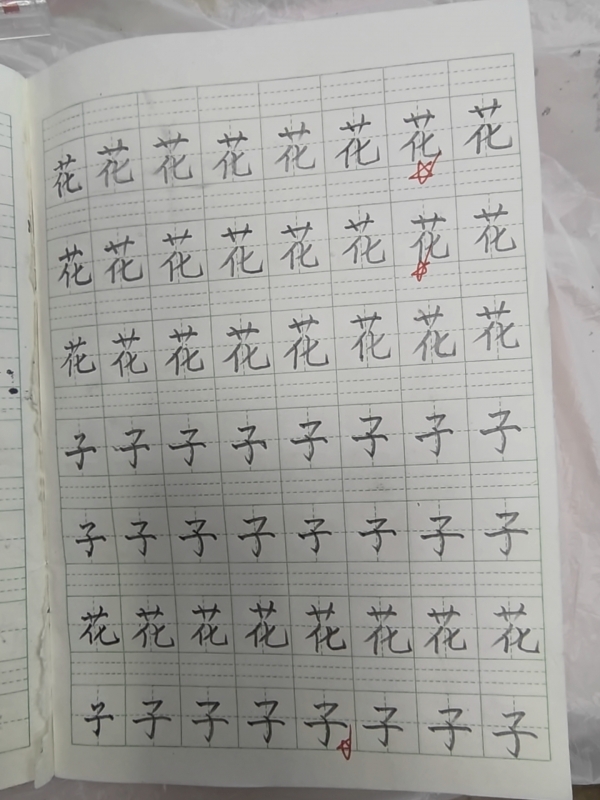 花花花花花花花花
花花花花花花花花
花花花花花花花花
子子子子子子子子
子子子子子子子子
花花花花花花花花
子子子子子子子子